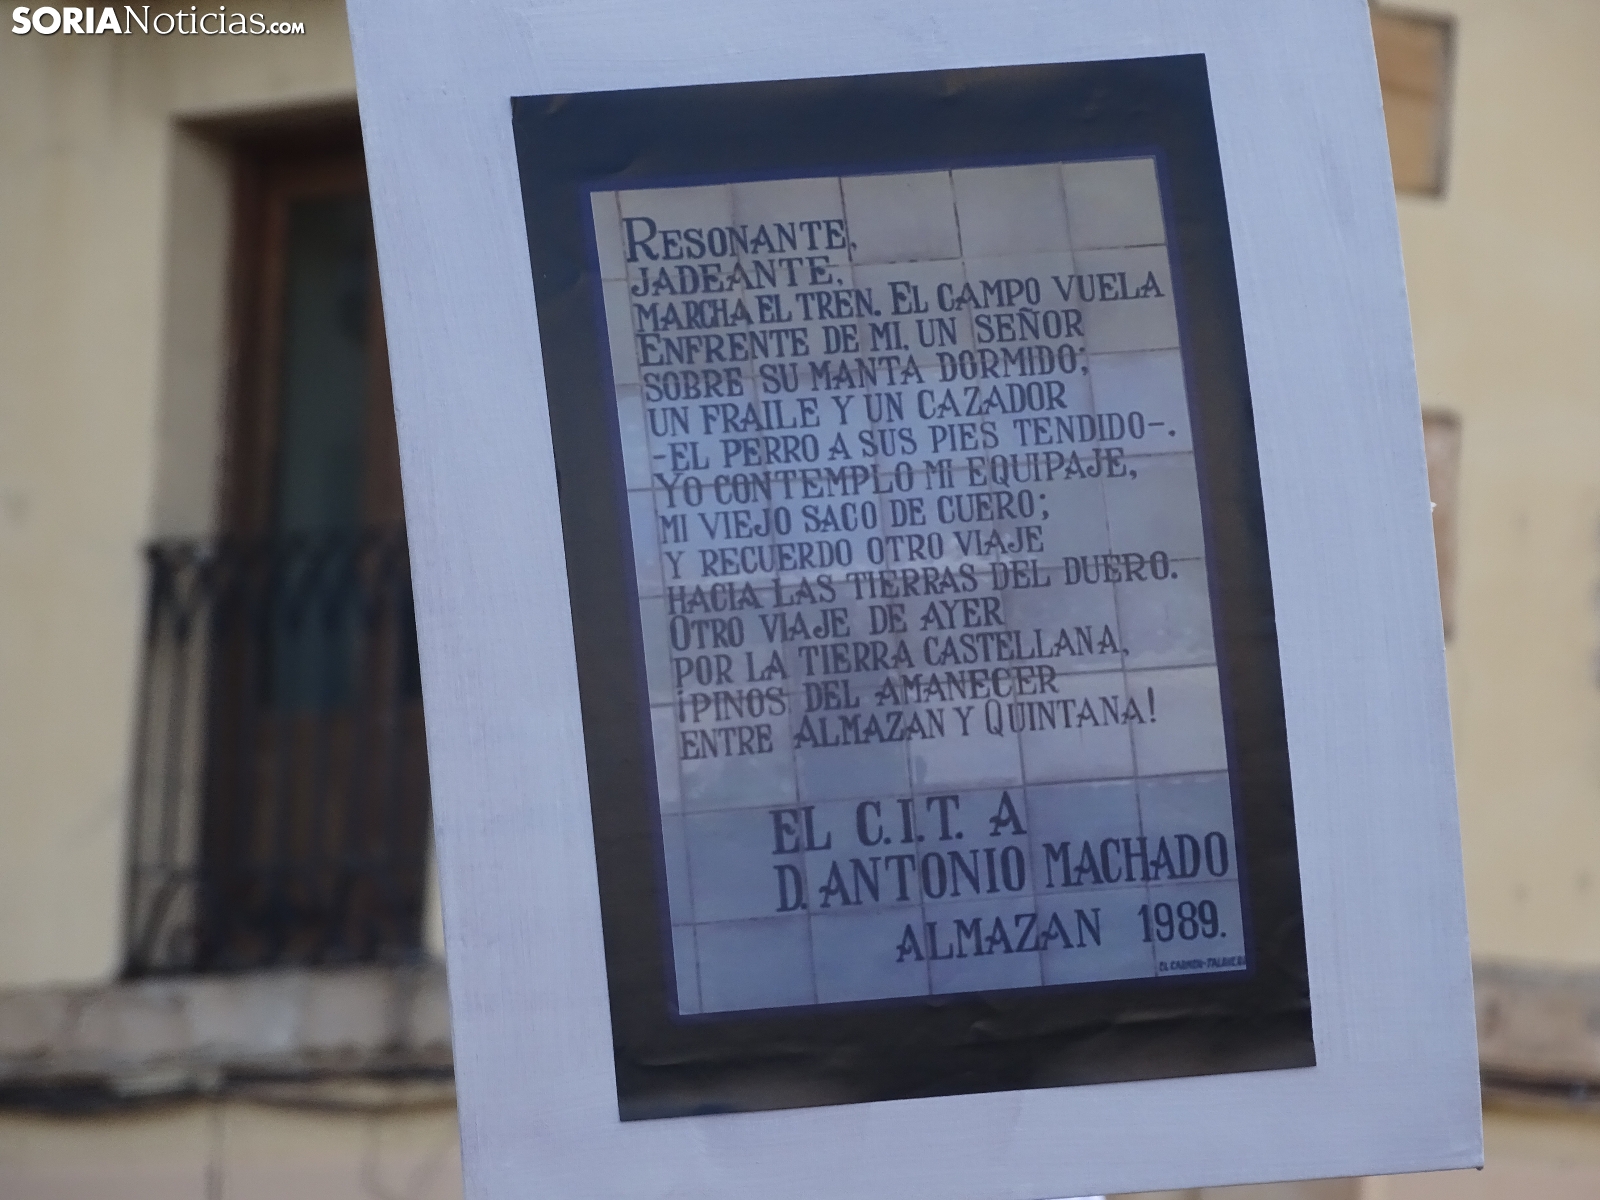 SORIANoticias.com
RESONANTE,
JADEANTE,
MARCHA EL TREN. EL CAMPO VUELA
ENFRENTE DE MI, UN SEÑOR
SOBRE SU MANTA DORMIDO;
UN FRAILE Y UN CAZADOR
-EL PERRO A SUS PIES TENDIDO-.
YO CONTEMPLO MI EQUIPAJE,
MI VIEJO SACO DE CUERO;
Y RECUERDO OTRO VIAJE
HACIA LAS TIERRAS DEL DUERO.
OTRO VIAJE DE AYER
POR LA TIERRA CASTELLANA,
¡PINOS DEL AMANECER
ENTRE ALMAZAN Y QUINTANA!
EL C.I.T. A
D. ANTONIO MACHADO
ALMAZAN 1989.
EL CARMEN-TALAVERA